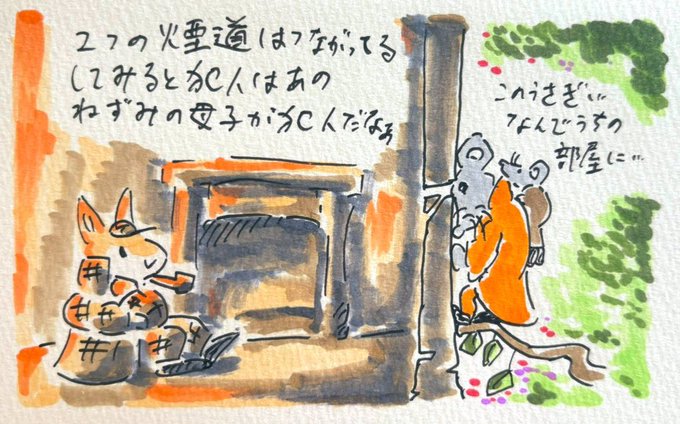 2つの煙道はつながってる
してみると犯人はあの
ねずみの母子が犯人だなぁ
このうさぎぃ
なんでうちの
部屋に…